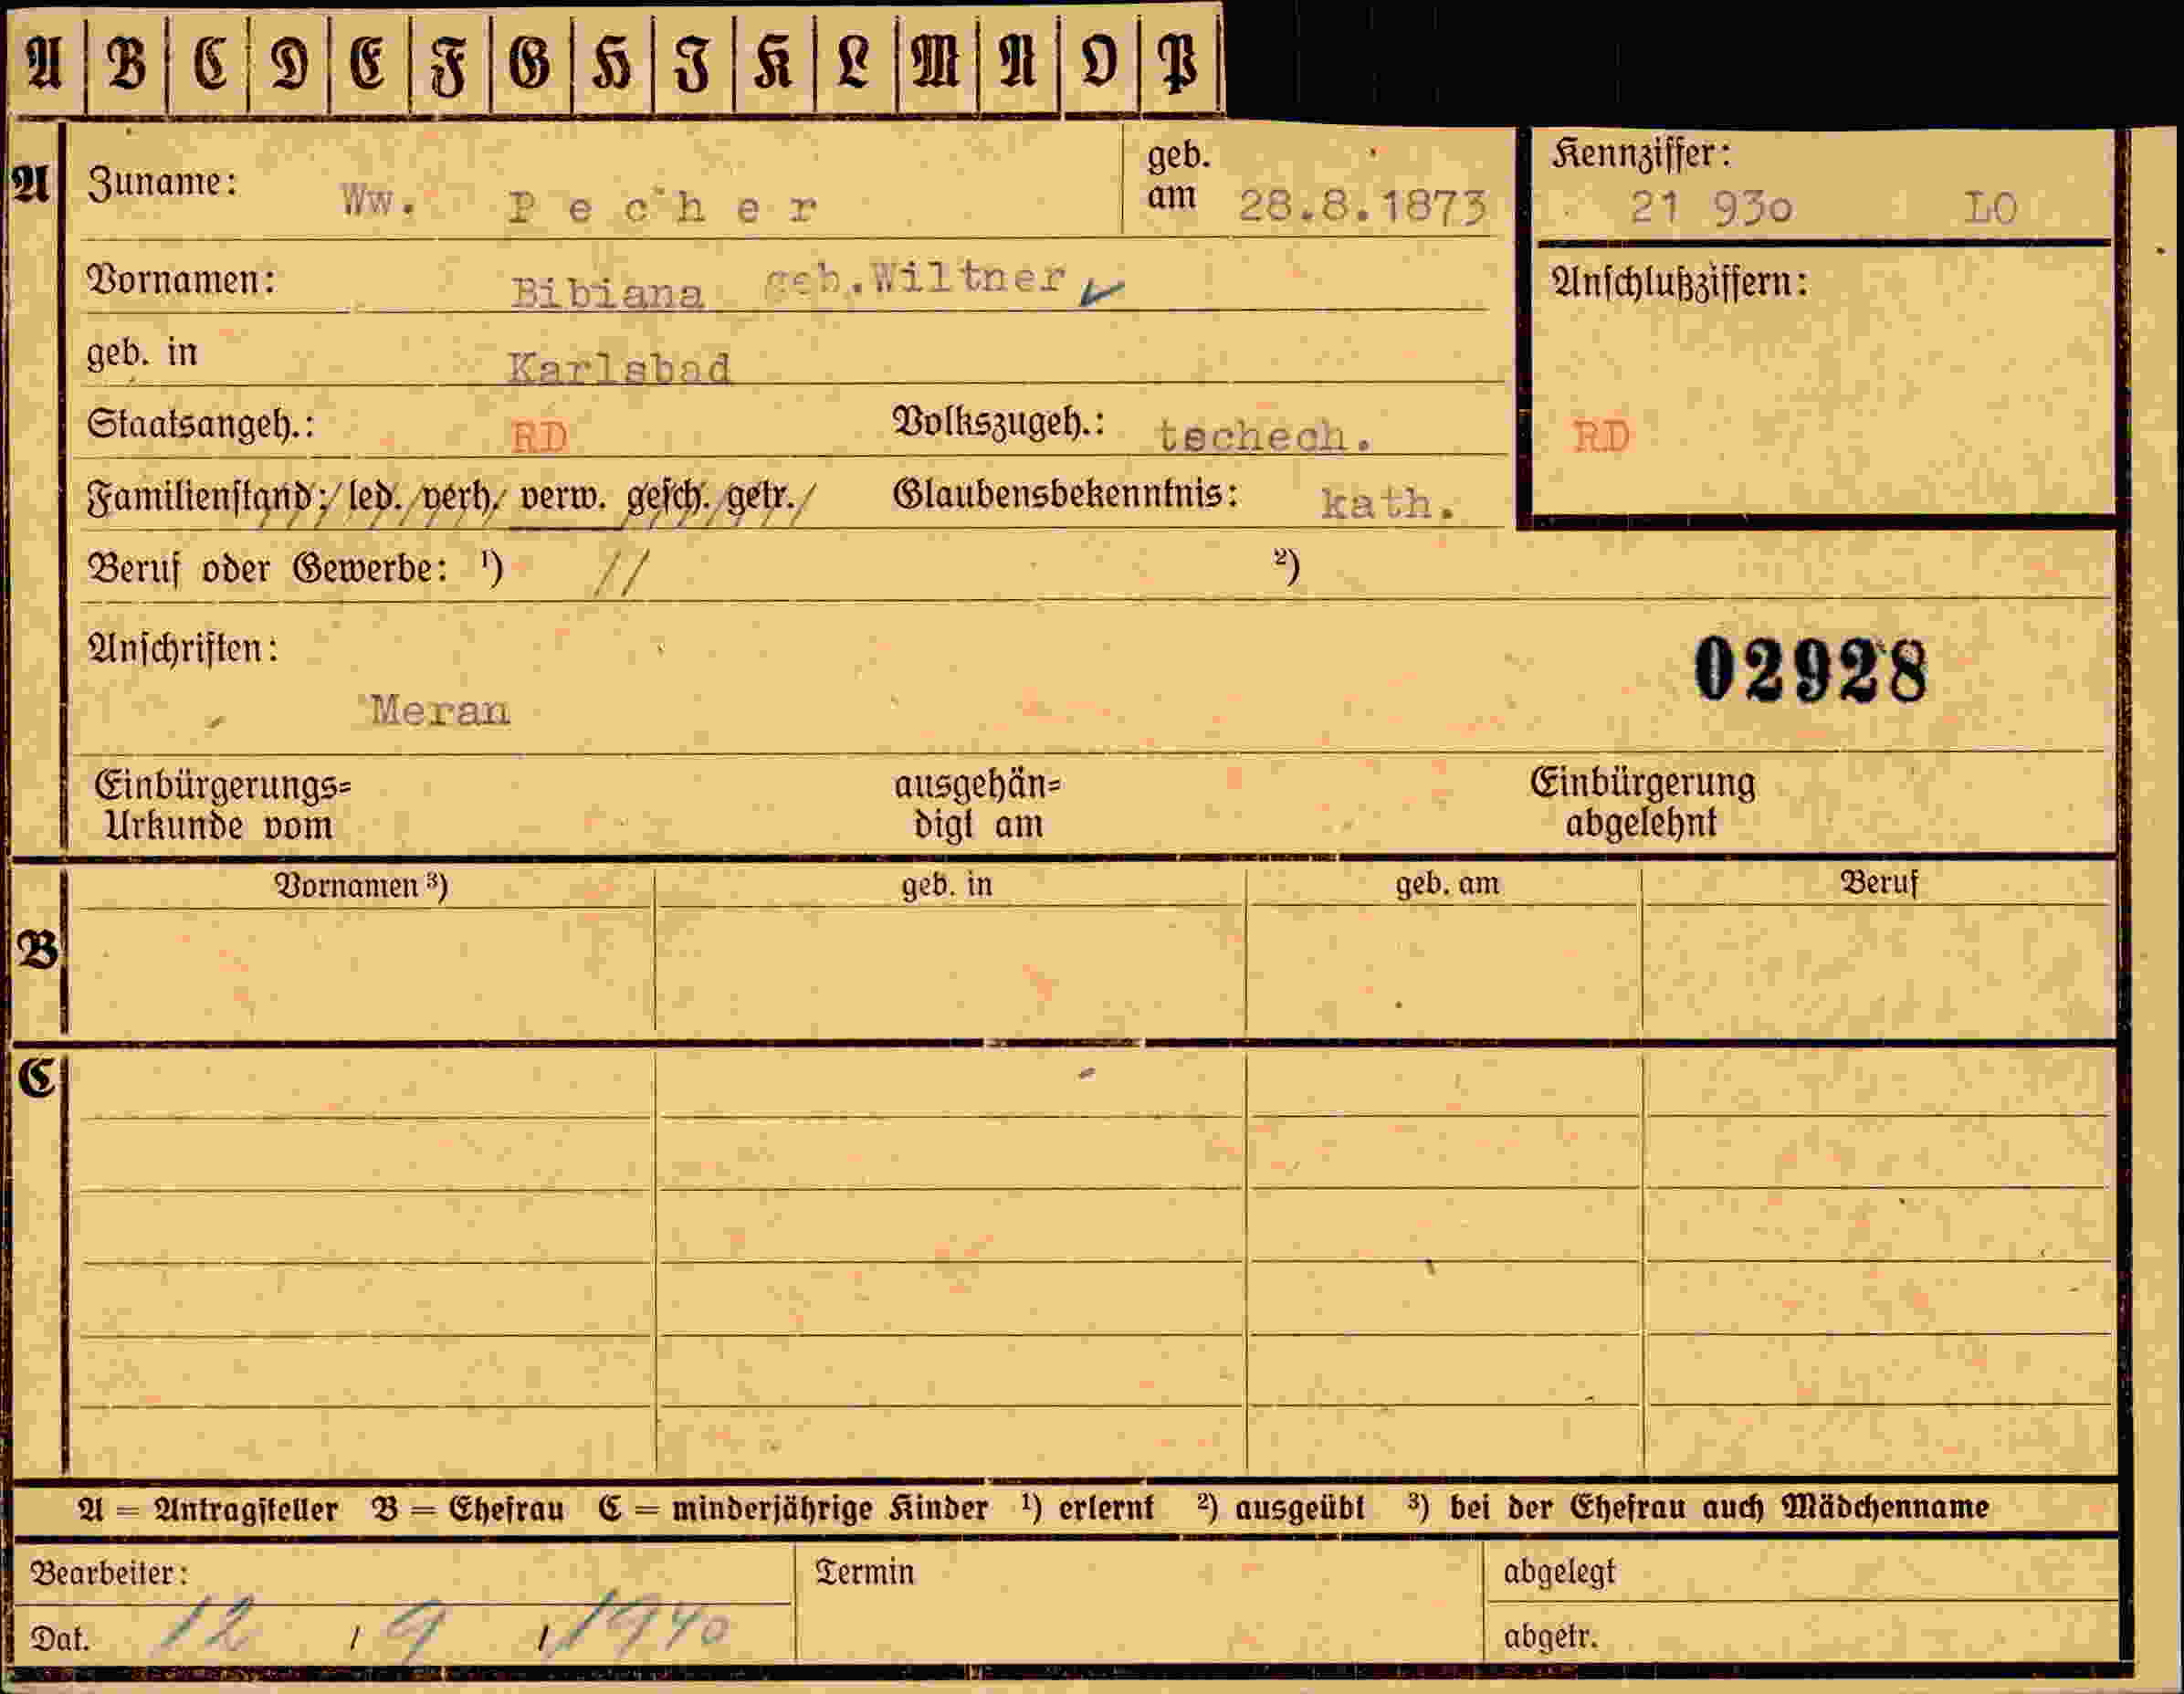 A B C D E F G H I K L M N O P
A Zuname: Ww. Pecher geb. am 28.8.1873 Kennziffer: 21 93o LO
Vornamen: Bibiana geb.Wiltner Anschlußziffern:
geb. in Karlsbad
Staatsangeh.: RD Volkszugeh.: tschech. RD
Familienstand: led. verh. verw. gesch. getr. Glaubensbekenntnis: kath.
Beruf oder Gewerbe: ¹) // ²)
Anschriften: 02928
Meran
Einbürgerungs= ausgehän= Einbürgerung
Urkunde vom digt am abgelehnt
Vornamen ³) geb. in geb. am Beruf
B
C
A = Antragsteller B = Ehefrau C = minderjährige Kinder ¹) erlernt ²) ausgeübt ³) bei der Ehefrau auch Mädchenname
Bearbeiter: Termin abgelegt
Dat. 12 / 9 / 1940 abgetr.